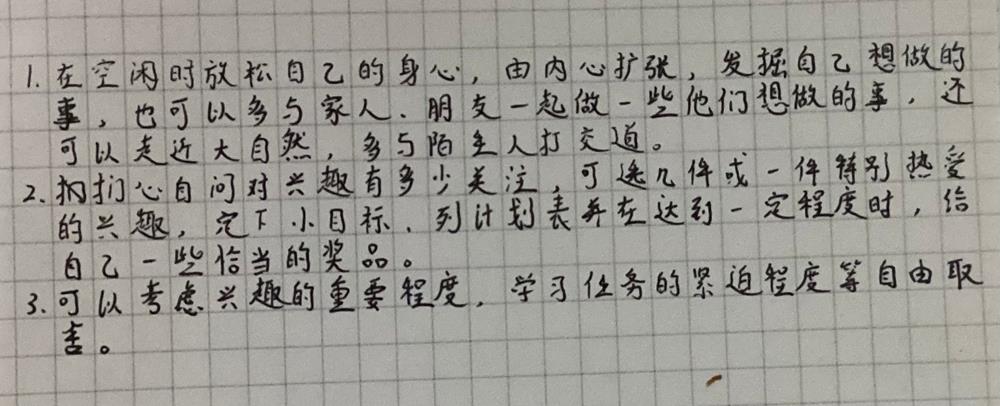 1. 在空闲时放松自己的身心，由内心扩张，发掘自己想做的
事，也可以多与家人、朋友一起做一些他们想做的事，还
可以走近大自然，多与陌生人打交道。
2. 扪心自问对兴趣有多少关注，可选几件或一件特别热爱
的兴趣，定下小目标、列计划表并在达到一定程度时，给
自己一些恰当的奖品。
3. 可以考虑兴趣的重要程度，学习任务的紧迫程度等自由取
舍。